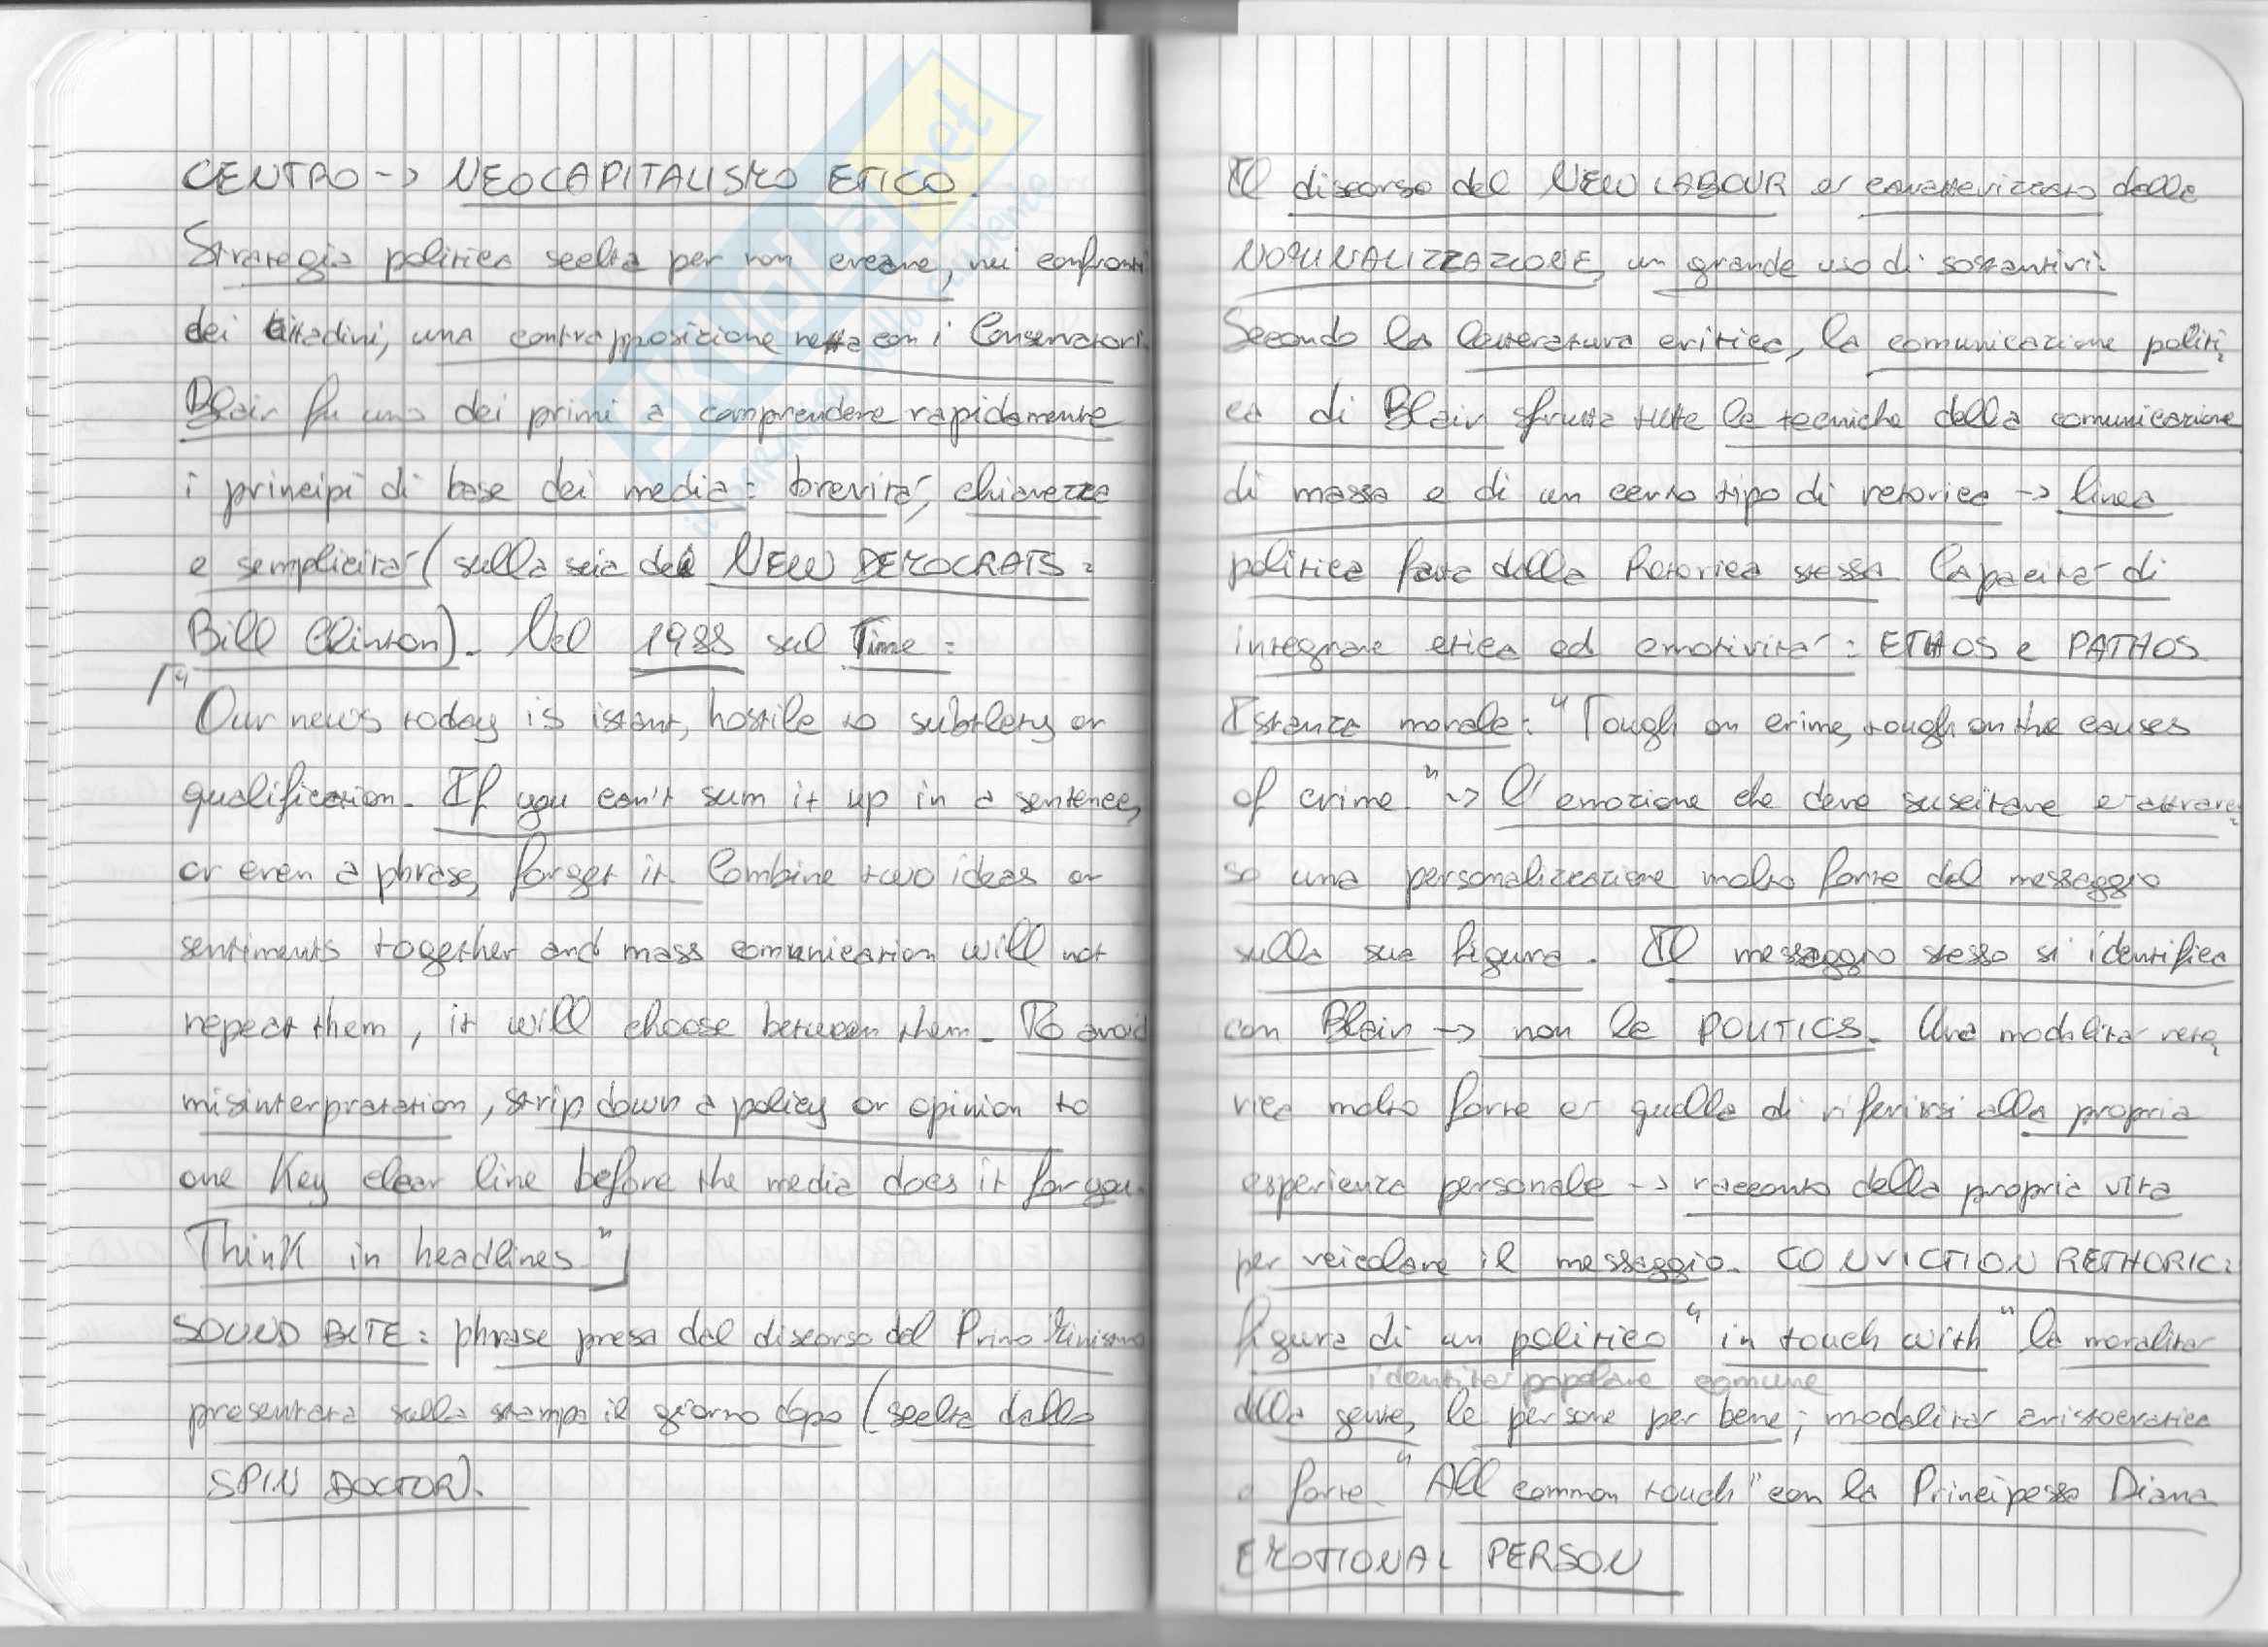 CENTRO -> NEOCAPITALISMO ETICO.
Strategia politica scelta per non creare, nei confronti
dei cittadini, una contrapposizione netta con i Conservatori.
Blair fu uno dei primi a comprendere rapidamente
i principi di base dei media: brevità, chiarezza
e semplicità (sulla scia dei NEW DEMOCRATS:
Bill Clinton). Nel 1988 sul Time:
"Our news today is istant, hostile to subtlety or
qualification. If you can't sum it up in a sentence,
or even a phrase, forget it. Combine two ideas or
sentiments together and mass comunication will not
repeat them, it will choose between them. To avoid
misinterpratation, strip down a policy or opinion to
one Key clear line before the media does it for you.
Think in headlines"
SOUND BITE: phrase presa dal discorso del Primo Ministro
presentata sulla stampa il giorno dopo (scelta dallo
SPIN DOCTOR).
Il discorso del NEW LABOUR è caratterizzato dalla
NOMINALIZZAZIONE, un grande uso di sostantivi.
Secondo la letteratura critica, la comunicazione politi
ca di Blair sfrutta tutte le tecniche della comunicazione
di massa e di un certo tipo di retorica -> linea
politica fatta dalla Retorica stessa. Capacità di
integrare etica ed emotività: ETHOS e PATHOS
Istanza morale: "Tough on crime, tough on the causes
of crime" -> l'emozione che deve suscitare è attraver
so una personalizzazione molto forte del messaggio
sulla sua figura. Il messaggio stesso si identifica
con Blair -> non la POLITICS. Una modalità reto
rica molto forte è quella di riferirsi alla propria
esperienza personale -> racconto della propria vita
per veicolare il messaggio. CONVICTION RETHORIC:
figura di un politico "in touch with" la moralità
identità popolare comune
della gente, le persone per bene; modalità aristocratica
e forte. "All common touch" con la Principessa Diana
EMOTIONAL PERSON
SKUOLA.net